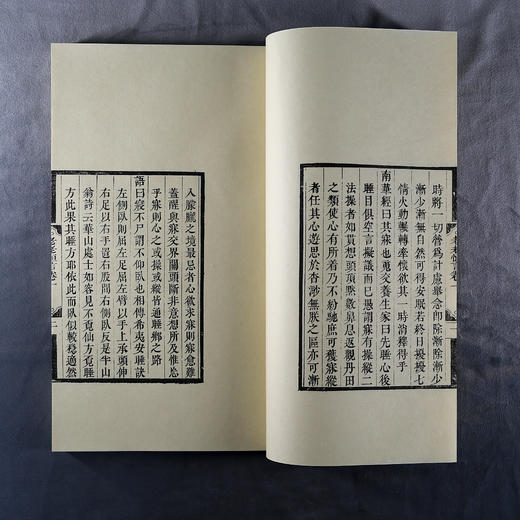 時將一切營為計慮舉念即除漸除漸少
漸少漸無自然可得安眠若終日擾擾七
情火動輾轉牽懷欲其一時消釋得乎
南華經曰其寐也魂交養生家曰先睡心後
睡目俱空言擬議而已愚謂寐有操縱二
法操者如貫想頭頂默數鼻息返觀丹田
之類使心有所着乃不紛馳庶可獲寐縱
者任其心遊思於杳渺無朕之區亦可漸
入朦朧之境最忌者心欲求寐則寐愈難
蓋醒與寐交界關頭斷非意想所及惟忘
乎寐則心之或操或縱皆通睡鄉之路
語曰寢不尸謂不仰臥也相傳希夷安睡訣
左側臥則屈左足屈左臂以手上承頭伸
右足以右手置右股間右側臥反是半山
翁詩云華山處士如容見不覓仙方覓睡
方此果其睡方耶依此而臥似較穩適然
老老恒言卷一